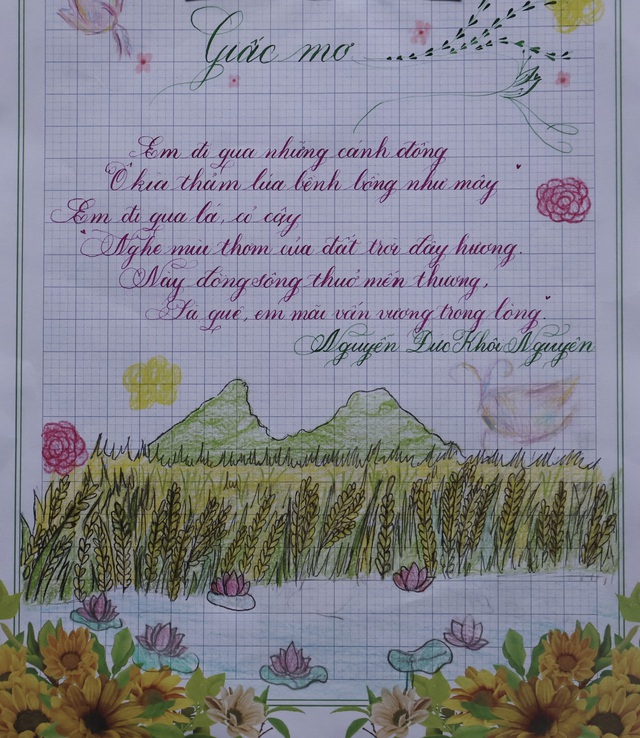 Giấc mơ
Em đi qua những cánh đồng
Ơ kìa thảm lúa bềnh bồng như mây
Em đi qua lá, cỏ cây
Nghe mùi thơm của đất trời đầy hương.
Này dòng sông thuở mến thương,
Là quê, em mãi vấn vương trong lòng.
Nguyễn Đức Khôi Nguyên